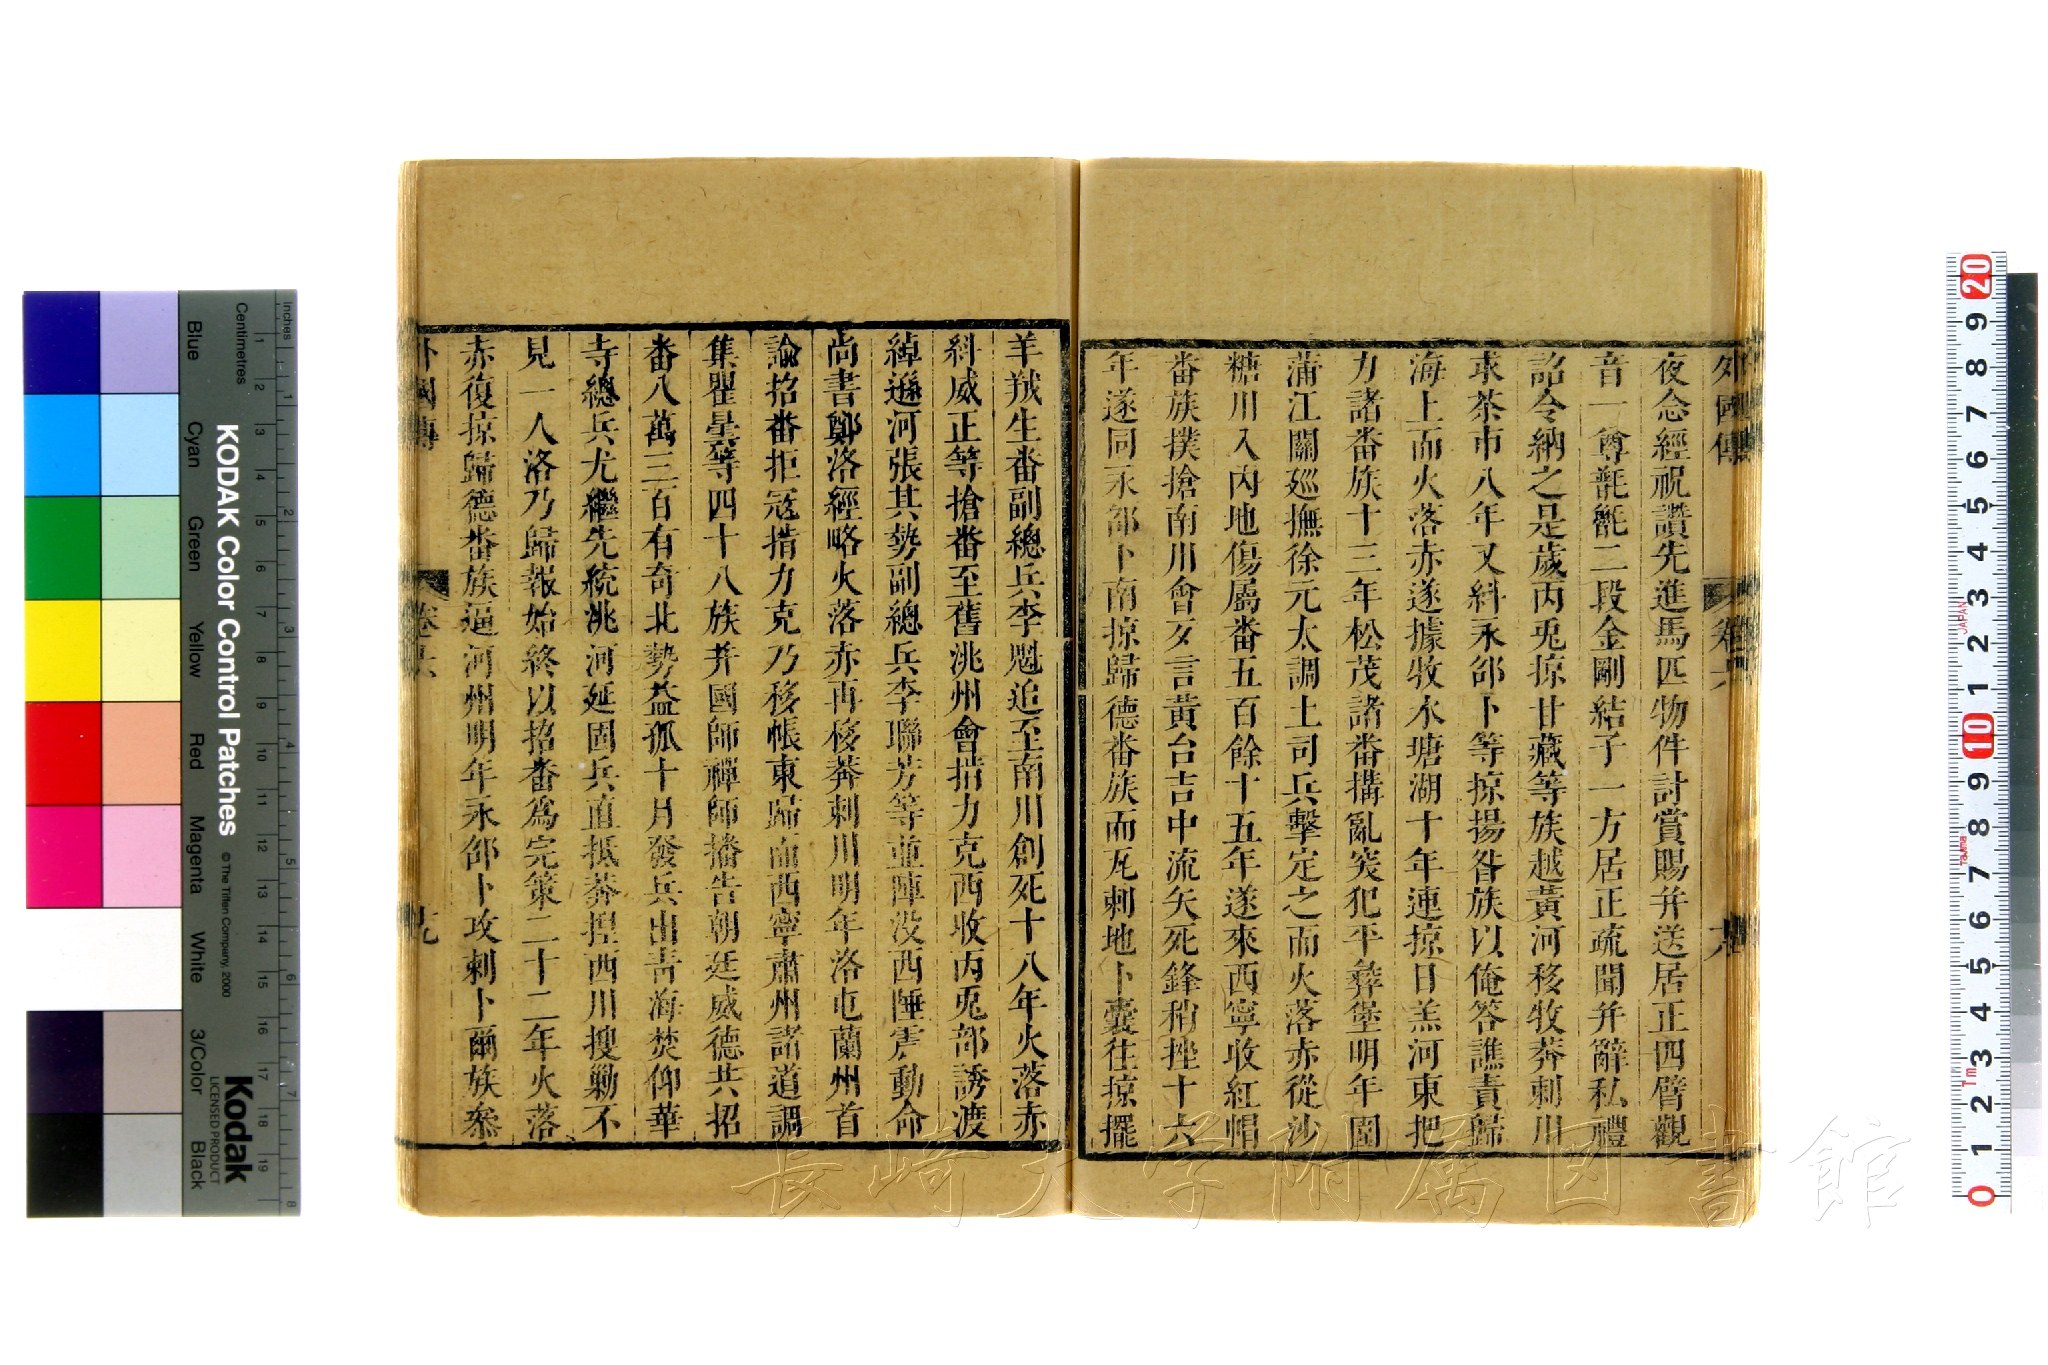 外國傳 卷六
夜念經祝讚先進馬匹物件討賞賜并送居正四臂觀
音一尊氆氌二段金剛結子一方居正疏聞并辭私禮
詔令納之是歲丙兎掠甘藏等族越黃河移牧莽剌川
求茶市八年又糾永邵卜等掠揚咎族以俺答譙責歸
海上而火落赤遂據牧水塘湖十年連掠日羔河東把
力諸畨族十三年松茂諸畨搆亂突犯平彝堡明年圍
蒲江關廵撫徐元太調土司兵擊定之而火落赤從沙
糖川入內地傷屬畨五百餘十五年遂來西寧收紅帽
畨族撲搶南川會亥言黃台吉中流矢死鋒稍挫十六
年遂同永邵卜南掠歸德畨族而瓦剌地卜囊往掠擺
羊羢生畨副總兵李魁追至南川創死十八年火落赤
糾威正等搶畨至舊洮州會撦力克西收丙兎部誘渡
綽遜河張其勢副總兵李聯芳等並陣没西陲震動命
尚書鄭洛經略火落赤再移莽剌川明年洛屯蘭州首
諭招畨拒寇撦力克乃移帳東歸而西寧肅州諸道調
集瞿曇等四十八族并國師禪師播告朝廷威德共招
畨八萬三百有奇北勢益孤十月發兵出靑海焚仰華
寺總兵尤繼先統洮河延固兵直抵莽捏西川搜勦不
見一人洛乃歸報始終以招畨爲完策二十二年火落
赤復掠歸德畨族逼河州明年永邵卜攻剌卜爾族叅
外國傳 卷六 十九
Blue Cyan Green Yellow Red Magenta White 3/Color Black
KODAK Color Control Patches ©The Tiffen Company, 2000
Kodak
LICENSED PRODUCT
Inches
Centimetres
JAPAN
長崎大学附属図書館